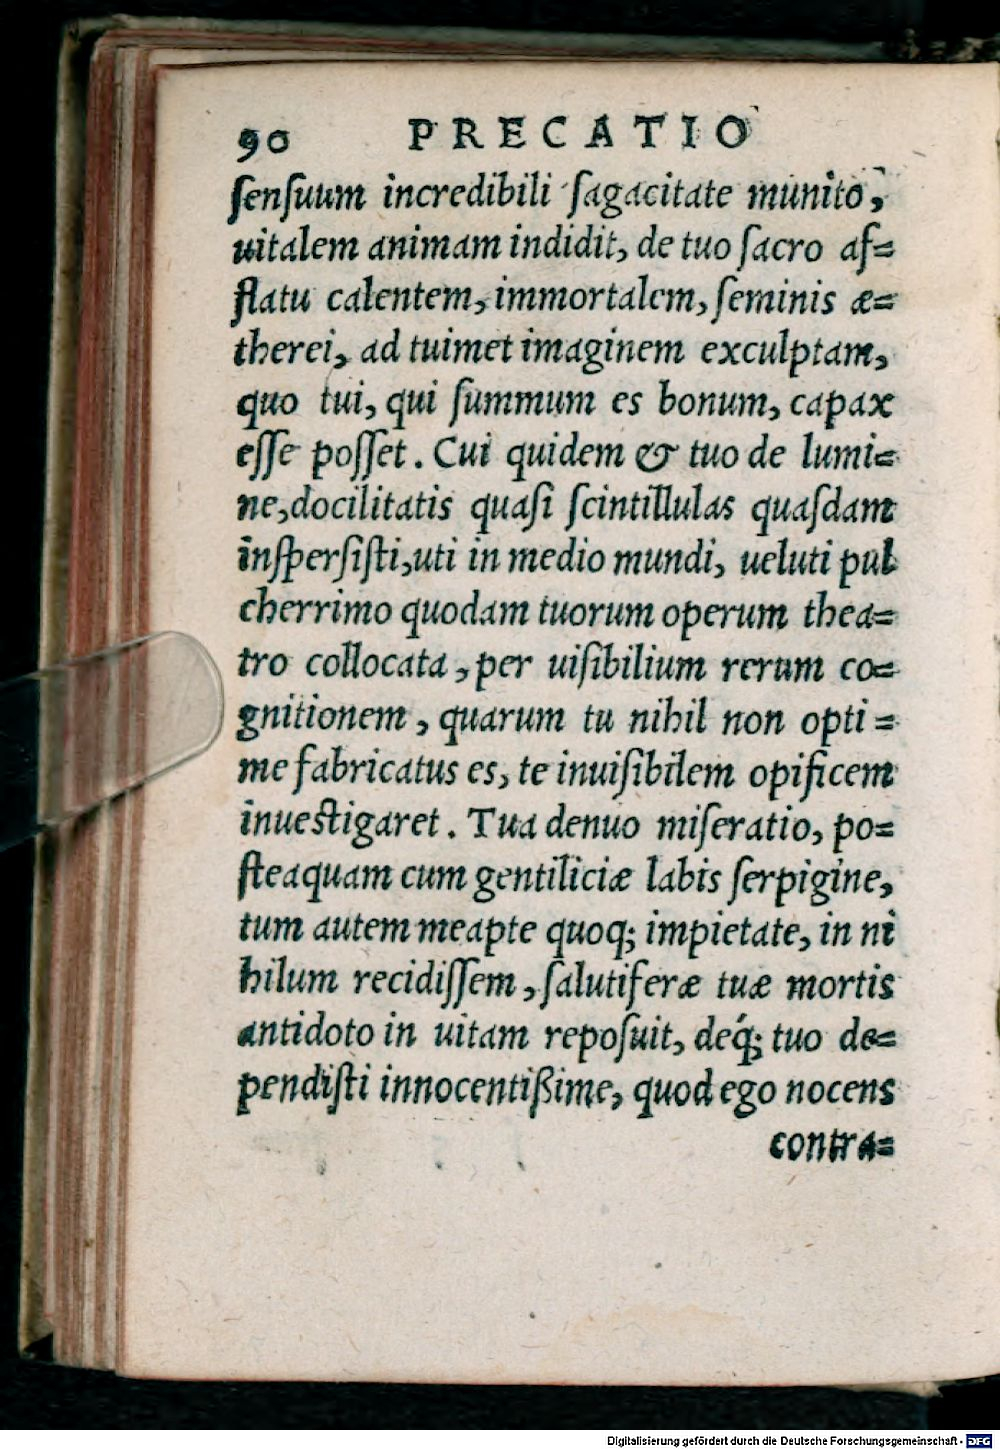 90 PRECATIO
ſenſuum incredibili ſagacitate munito,
uitalem animam indidit, de tuo ſacro af=
flatu calentem, immortalem, ſeminis æ=
therei, ad tuimet imaginem exculptam,
quo tui, qui ſummum es bonum, capax
eſſe poſſet. Cui quidem & tuo de lumi=
ne, docilitatis quaſi ſcintillulas quaſdam
inſperſiſti, uti in medio mundi, ueluti pul
cherrimo quodam tuorum operum thea=
tro collocata, per uiſibilium rerum co=
gnitionem, quarum tu nihil non opti=
me fabricatus es, te inuiſibilem opificem
inueſtigaret. Tua denuo miſeratio, po=
ſteaquam cum gentiliciæ labis ſerpigine,
tum autem meapte quoq; impietate, in ni
hilum recidiſſem, ſalutiferæ tuæ mortis
antidoto in uitam repoſuit, deq́; tuo de=
pendiſti innocentißime, quod ego nocens
contra=
Digitalisierung gefördert durch die Deutsche Forschungsgemeinschaft - DFG